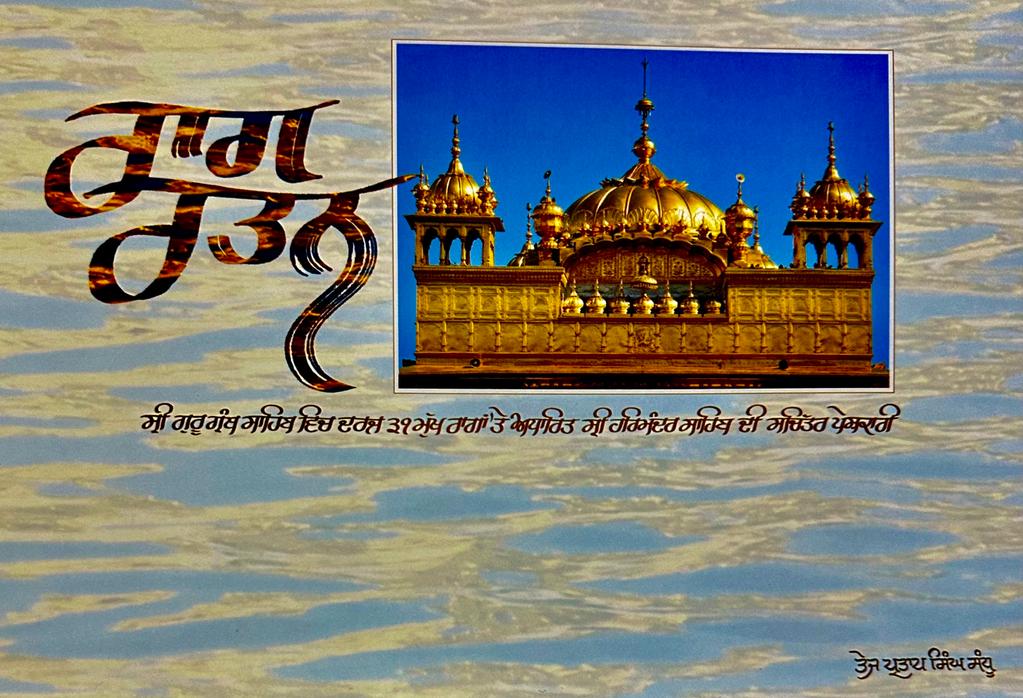 ਰਾਗ
ਰਤਨ
ਸ੍ਰੀ ਗੁਰੂ ਗ੍ਰੰਥ ਸਾਹਿਬ ਵਿਚ ਦਰਜ ੩੧ ਮੁੱਖ ਰਾਗਾਂ 'ਤੇ ਅਧਾਰਿਤ ਸ੍ਰੀ ਹਰਿਮੰਦਰ ਸਾਹਿਬ ਦੀ ਸਚਿੱਤਰ ਪੇਸ਼ਕਾਰੀ
ਤੇਜ ਪ੍ਰਤਾਪ ਸਿੰਘ ਸੰਧੂ